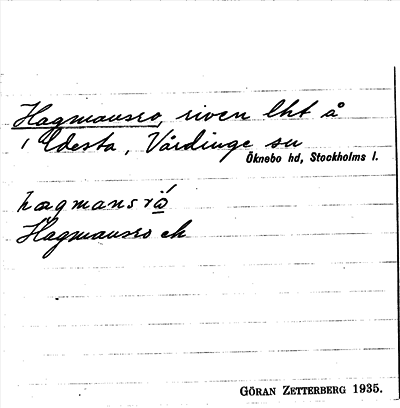 Hagmansro, riven lht å
i Edesta, Vårdinge sn
Öknebo hd, Stockholms l.
hagmansrώ̣
Hagmansro ek
GÖRAN ZETTERBERG 1935.